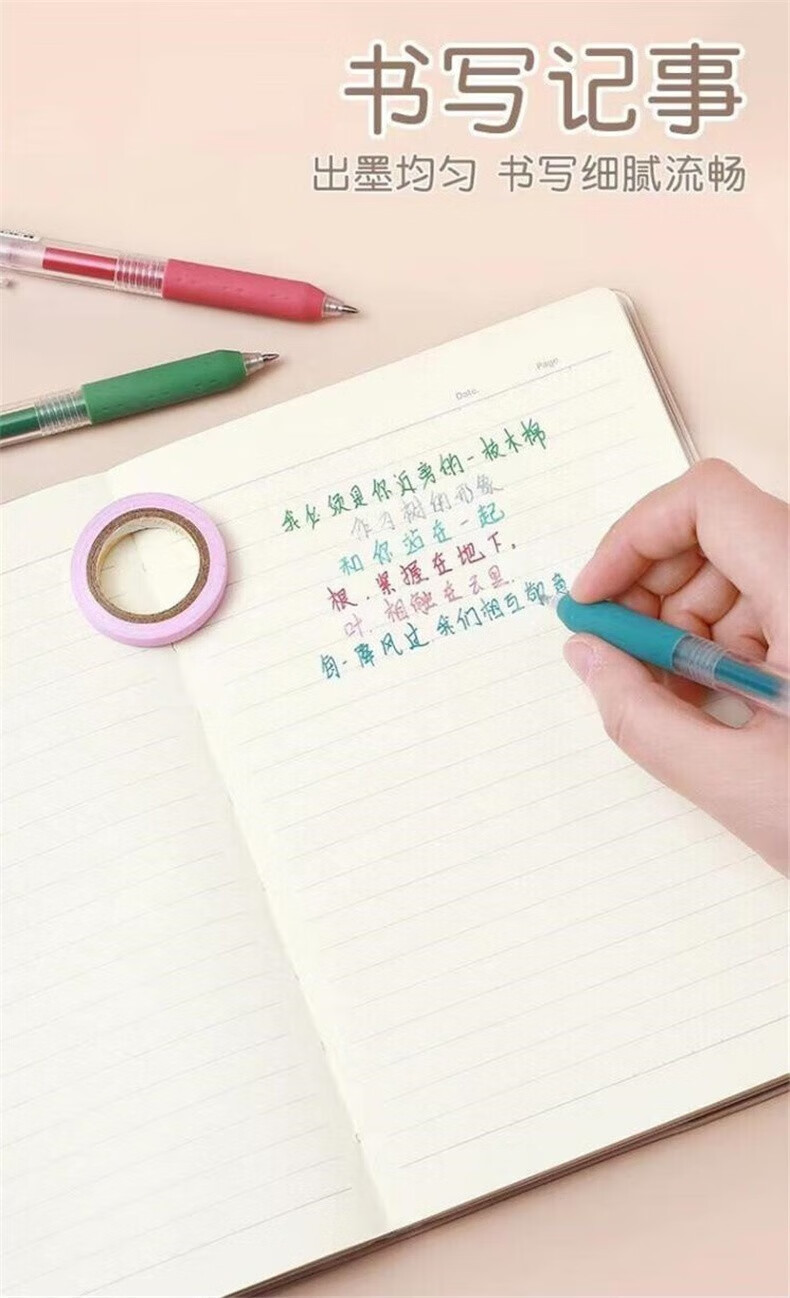 书写记事
出墨均匀 书写细腻流畅
Date.
Page
我必须是你近旁的一枝木棉
作为树的形象
和你站在一起
根.紧握在地下.
叶.相触在云里.
每一阵风过.我们相互致意